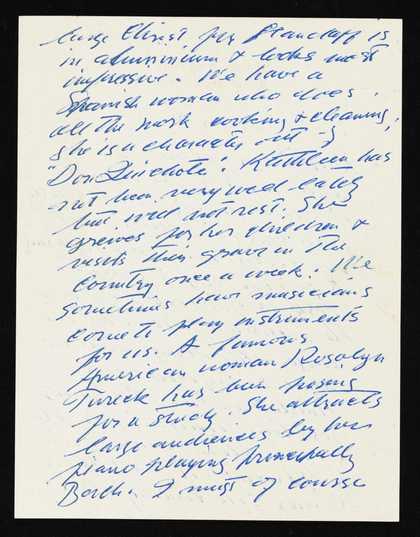 large Christ for Llandaff is
in aluminium & looks most
impressive. We have a
Spanish woman who does
all the work cooking & cleaning,
she is a character out of
"Don Quichote". Kathleen has
not been very well lately
but will not rest. She
grieves for her children &
visits their grave in the
country once a week. We
sometimes have musicians
come to play instruments
for us. A famous
American woman Rosalyn
Tureck has been posing
for a study. She attracts
large audiences by her
piano playing principally
Bach. I must of course